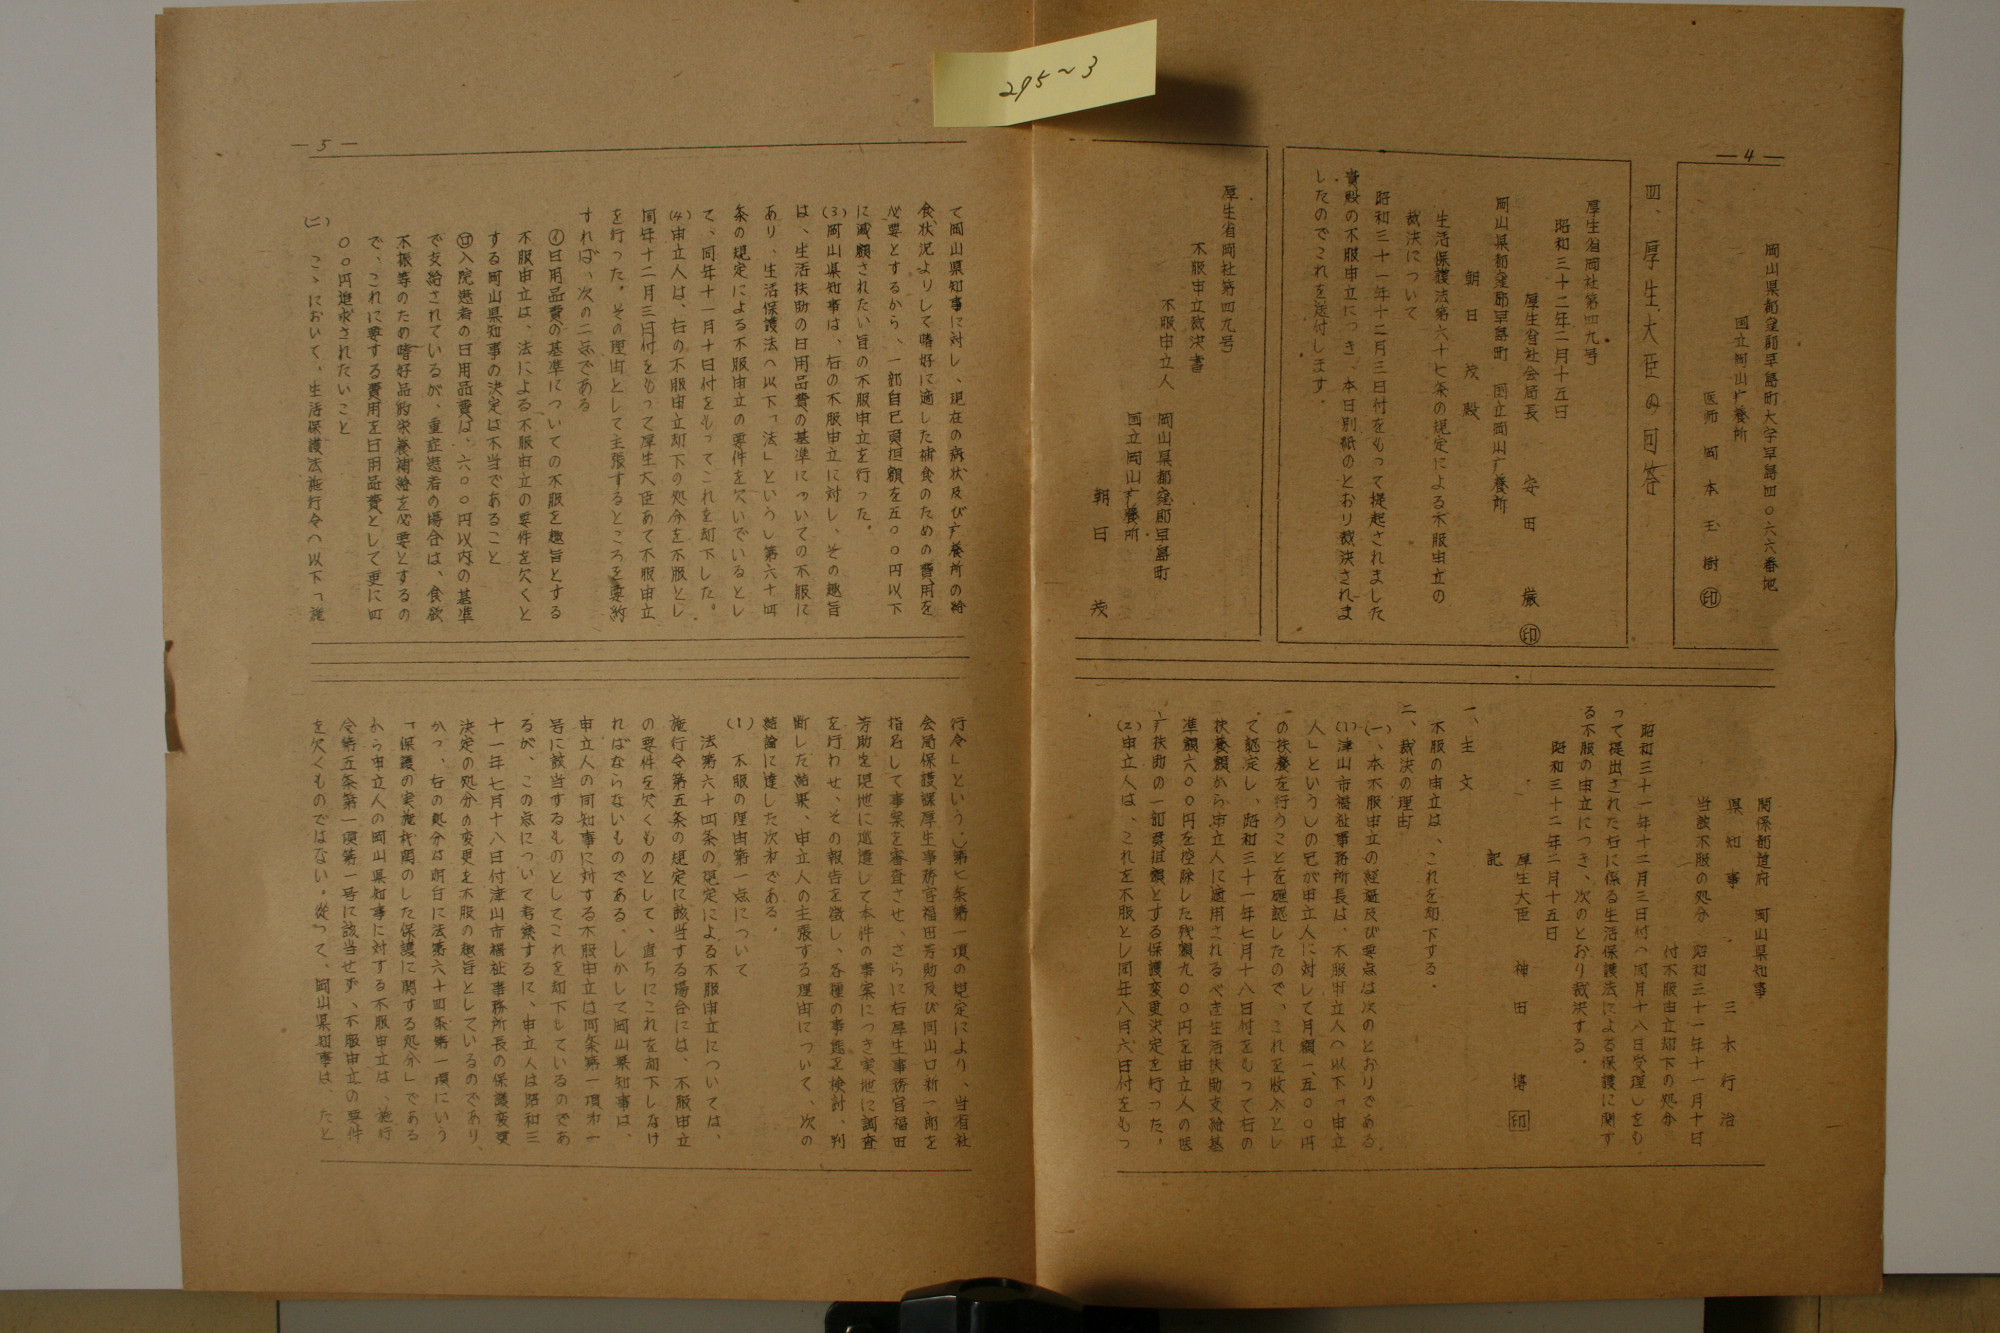 295~3
— 4 —
岡山県都窪郡早島町大字早島四〇六六番地
国立岡山療養所
医師 岡本玉樹 ㊞
四、厚生大臣の回答
厚生省岡社第四九号
昭和三十二年二月十五日
厚生省社会局長 安田巌 ㊞
岡山県都窪郡早島町 国立岡山療養所
朝日茂殿
生活保護法第六十七条の規定による不服申立の
裁決について
昭和三十一年十二月三日付をもって提起されました
貴殿の不服申立につき、本日別紙のとおり裁決されま
したのでこれを送付します。
厚生省岡社第四九号
不服申立裁決書
不服申立人 岡山県都窪郡早島町
国立岡山療養所
朝日茂
関係都道府 岡山県知事
県知事 三木行治
当該不服の処分 昭和三十一年十一月十日
付不服申立却下の処分
昭和三十一年十二月三日付(同月十八日受理)をも
って提出された右に係る生活保護法による保護に関す
る不服の申立につき、次のとおり裁決する。
昭和三十二年二月十五日
厚生大臣 神田博 印
記
一、主文
不服の申立は、これを却下する。
二、裁決の理由
(一)、本不服申立の経過及び要点は次のとおりである。
(1)津山市福祉事務所長は、不服申立人(以下「申立
人」という)の兄が申立人に対して月額一、五〇〇円
の扶養を行うことを確認したので、これを收入とし
て認定し、昭和三十一年七月十八日付をもって右の
扶養額から申立人に適用されるべき生活扶助支給基
準額六〇〇円を控除した残額九〇〇円を申立人の医
療扶助の一部負担額とする保護変更決定を行った。
(2)申立人は、これを不服とし同年八月六日付をもっ
— 5 —
て岡山県知事に対し、現在の病状及び療養所の給
食状況よりして嗜好に適した補食のための費用を
必要とするから、一部自己負担額を五〇〇円以下
に減額されたい旨の不服申立を行った。
(3)岡山県知事は、右の不服申立に対し、その趣旨
は、生活扶助の日用品費の基準についての不服に
あり、生活保護法(以下「法」という)第六十四
条の規定による不服申立の要件を欠いでいるとし
て、同年十一月十日付をもってこれを却下した。
(4)申立人は、右の不服申立却下の処分を不服とし
同年十二月三日付をもって厚生大臣あて不服申立
を行った。その理由として主張するところを要約
すれば、次の二点である
㋑日用品費の基準についての不服を趣旨とする
不服申立は、法による不服申立の要件を欠くと
する岡山県知事の決定は不当であること
㋺入院患者の日用品費は、六〇〇円以内の基準
で支給されているが、重症患者の場合は、食欲
不振等のため嗜好品的栄養補給を必要とするの
で、これに要する費用を日用品費として更に四
〇〇円追求されたいこと
(二) こゝにおいて、生活保護法施行令(以下「施
行令」という。)第七条第一項の規定により、当省社
会局保護課厚生事務官福田芳助及び同山口新一郎を
指名して事案を審査させ、さらに右厚生事務官福田
芳助を現地に巡遣して本件の事案につき実地に調査
を行わせ、その報告を徴し、各種の事態を検討、判
断した結果、申立人の主張する理由について、次の
結論に達した次才である。
(1) 不服の理由第一点について
法第六十四条の規定による不服申立については、
施行令第五条の規定に該当する場合には、不服申立
の要件を欠くものとして、直ちにこれを却下しなけ
ればならないものである、しかして岡山県知事は、
申立人の同知事に対する不服申立は同条第一項才一
号に該当するものとしてこれを却下しているのであ
るが、この点について考察するに、申立人は昭和三
十一年七月十八日付津山市福祉事務所長の保護変更
決定の処分の変更を不服の趣旨としているのであり、
かつ、右の処分は明白に法第六十四条第一項にいう
「保護の実施機関のした保護に関する処分」である
から申立人の岡山県知事に対する不服申立は、施行
令第五条第一項第一号に該当せず、不服申立の要件
を欠くものではない。從って、岡山県知事は、たと